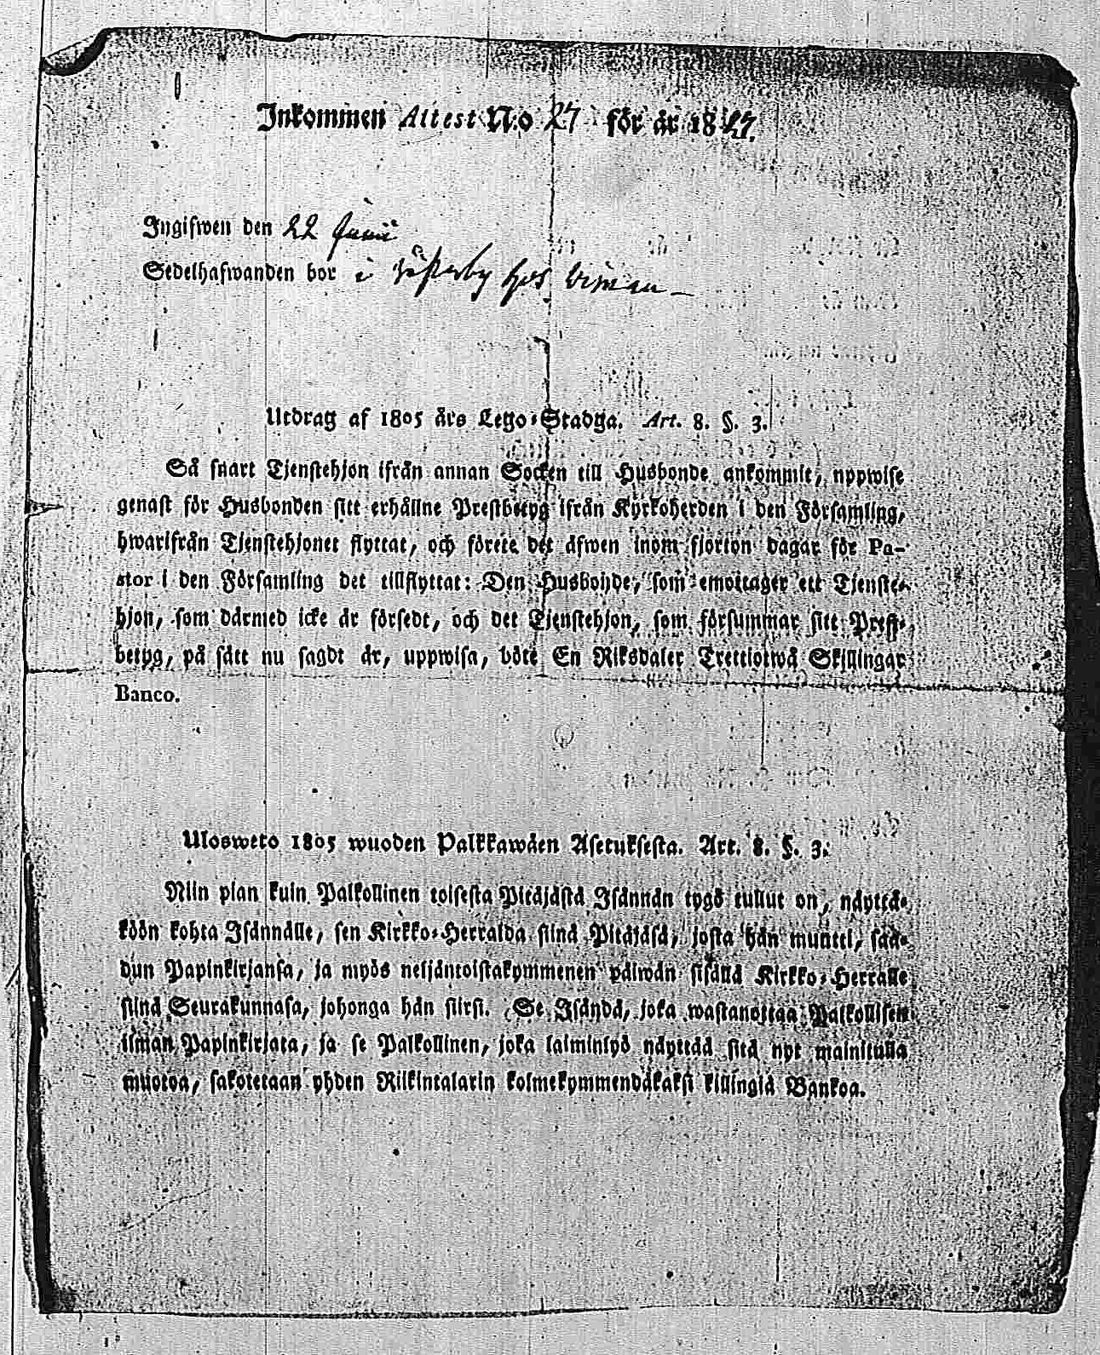 Inkommen Attest N:o 27 för år 1827.
Ingifwen den 22 Junii
Sedelhafwanden bor i Wästerby hos
Utdrag af 1805 års Lego-Stadga. Art. 8. §. 3.
Så snart Tjenstehjon ifrån annan Socken till Husbonde ankommit, uppwise
genast för Husbonden sitt erhållne Prestbetyg ifrån Kyrkoherden i den Församling,
hwarifrån Tjenstehjonet flyttat, och förete det äfwen inom fjorton dagar för Pa-
stor i den Församling det tillflyttat: Den Husbonde, som emottager ett Tjenste-
hjon, som därmed icke är försedt, och det Tjenstehjon, som försummar sitt Prest-
betyg, på sätt nu sagdt är, uppwisa, böte En Riksdaler Trettiotwå Skillingar
Banco.
Ulosweto 1805 wuoden Palkkawäen Asetuksesta. Art. 8. §. 3.
Niin pian kuin Palkollinen toisesta Pitäjästä Isännän tygö tullut on, näyttä-
köön kohta Isännälle, sen Kirkko-Herralda siinä Pitäjäsä, josta hän muutti, saa-
dun Papinkirjansa, ja myös neljäntoistakymmenen päiwän sisällä Kirkko-Herralle
siinä Seurakunnasa, johonga hän siirsi. Se Isändä, joka wastanottaa Palkollisen
ilman Papinkirjata, ja se Palkollinen, joka laiminlyö näyttää sitä nyt mainitulla
muotoa, sakotetaan yhden Riikintalarin kolmekymmendäkaksi killingiä Bankoa.